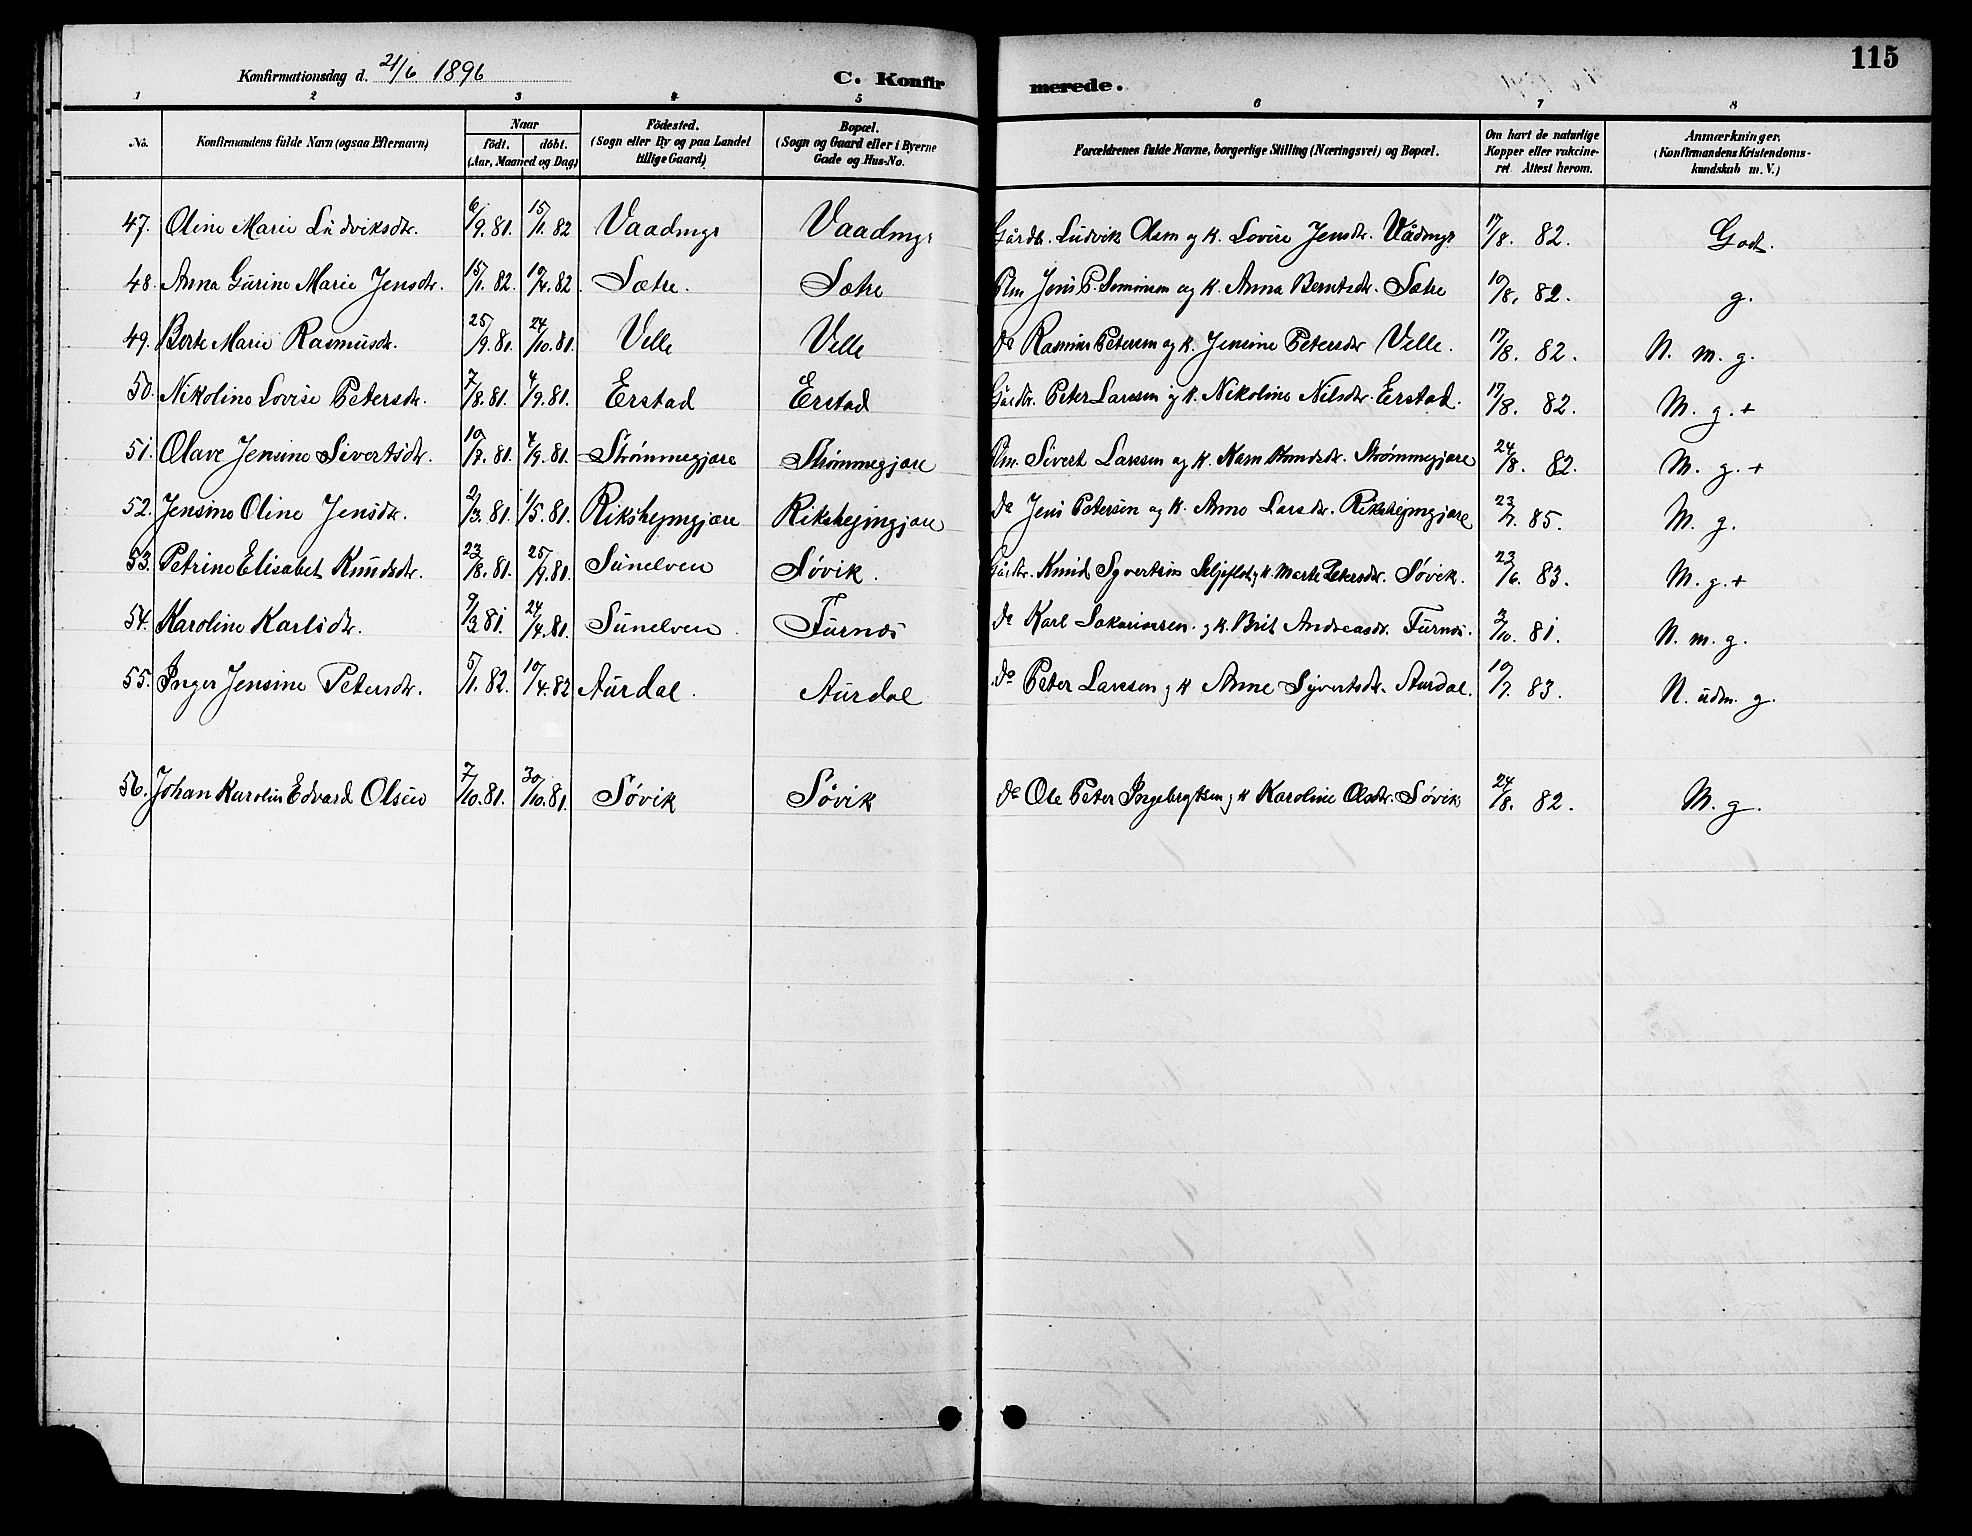 115
Konfirmationsdag d. 21/6 1896
C. Konfirmerede.
1 2 3 4 5 6 7 8
No. Konfirmandens fulde Navn (ogsaa Efternavn) Naar födt. döbt. (Aar, Maaned og Dag) Födested. (Sogn eller By og paa Landet tillige Gaard) Bopæl. (Sogn og Gaard eller i Byerne Gade og Hus-No. Forældrenes fulde Navne, borgerlige Stilling (Næringsvei) og Bopæl. Om havt de naturlige Kopper eller vakcineret Attest herom. Anmærkninger. (Konfirmandens Kristendomskundskab m. V.)
47. Oline Marie Ludviksdtr. 6/9.81. 15/1.82 Vaadmyr Vaadmyr Gårdb. Ludvik Olsen og K. Lovise Jensdtr. Vådmyr 17/8. 82. God.
48. Anna Gurine Marie Jensdtr. 15/1.82. 10/4.82. Sætre. Sætre Jens P. og K. Anna Berntsdtr. Sætre 10/8. 82. g.
49. Berte Marie Rasmusdtr. 25/9.81. 24/10.81. Velle Velle do Rasmus Petersen og K. Jensine Petersdtr Velle. 17/8. 82. N. m. g.
50. Nikoline Lovise Petersdtr. 7/8.81. 4/9.81. Erstad Erstad Gårdbr. Peter Larssen og K. Nikoline Nilsdtr. Erstad. 17/8. 82. M. g. +
51. Olave Jensine Sivertsdtr. 10/7.81. 4/9.81. Strømmegjære Strømmegjære Sivert Larssen og K. Karn Strømmegjære 24/8. 82. M. g. +
52. Jensine Oline Jensdtr. 2/3.81. 1/5.81. Riksheimgjære Riksheimgjære do Jens Petersen og K. Anne Larsdtr. Riksheimgjære 23/7. 85. M. g.
53. Petrine Elisabet Knudsdtr. 23/8.81. 25/9.81. Sunelven Søvik. Gårdbr. Knud Syvertsen og K. Marte Petersdtr. Søvik. 23/6. 83. M. g. +
54. Karoline Karlsdtr. 9/3.81. 24/4.81. Sunelven Furnes do Karl Sakariassen og K. Brit Andreasdtr. Furnes. 3/10. 81. N. m. g.
55. Inger Jensine Petersdtr. 5/1.82. 10/4.82 Aurdal. Aurdal do Peter Larssen og K Anne Syvertsdtr. Aurdal. 10/7. 83. N. udm. g.
56. Johan Karolus Edvard Olsen 7/10.81. 30/10.81. Søvik Søvik do Ole Peter Ingebrigtsen og K Karoline Olsdtr. Søvik 24/8. 82. M. g.